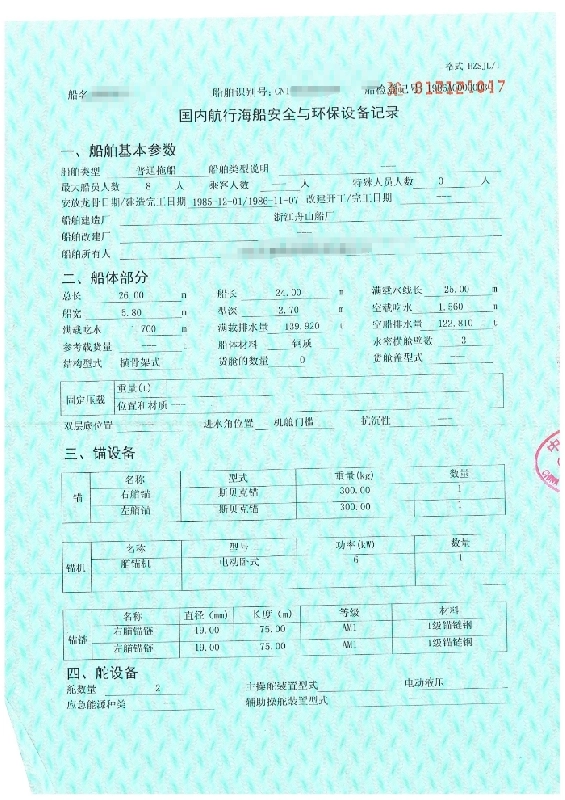 格式 HZSJL/1
船名 船舶识别号：CN1 船检登记号 1985M0000030
№ 012121017
国内航行海船安全与环保设备记录
一、船舶基本参数
船舶类型 普通拖船 船舶类型说明 ——
最大船员人数 8 人 乘客人数 —— 人 特殊人员人数 0 人
安放龙骨日期/建造完工日期 1985-12-01/1986-11-07 改建开工/完工日期 ——
船舶建造厂 浙江舟山船厂
船舶改建厂 ——
船舶所有人
二、船体部分
总长 26.00 m 船长 24.00 m 满载水线长 25.00 m
船宽 5.80 m 型深 2.70 m 空载吃水 1.560 m
满载吃水 1.700 m 满载排水量 139.920 t 空船排水量 122.810 t
参考载货量 —— t 船体材料 钢质 水密横舱壁数 3
结构型式 横骨架式 货舱的数量 0 货舱盖型式 ——
固定压载 重量(t)
位置和材质 ——
双层底位置 —— 进水角位置 机舱门槛 抗沉性 ——
三、锚设备
锚 名称 型式 重量(kg) 数量
右艏锚 斯贝克锚 300.00 1
左艏锚 斯贝克锚 300.00 1
锚机 名称 型号 功率(kW) 数量
艏锚机 电动卧式 6 1
锚链 名称 直径(mm) 长度(m) 等级 材料
右艏锚链 19.00 75.00 AM1 1级锚链钢
左艏锚链 19.00 75.00 AM1 1级锚链钢
四、舵设备
舵数量 2 主操舵装置型式 电动液压
应急能源种类 —— 辅助操舵装置型式 ——